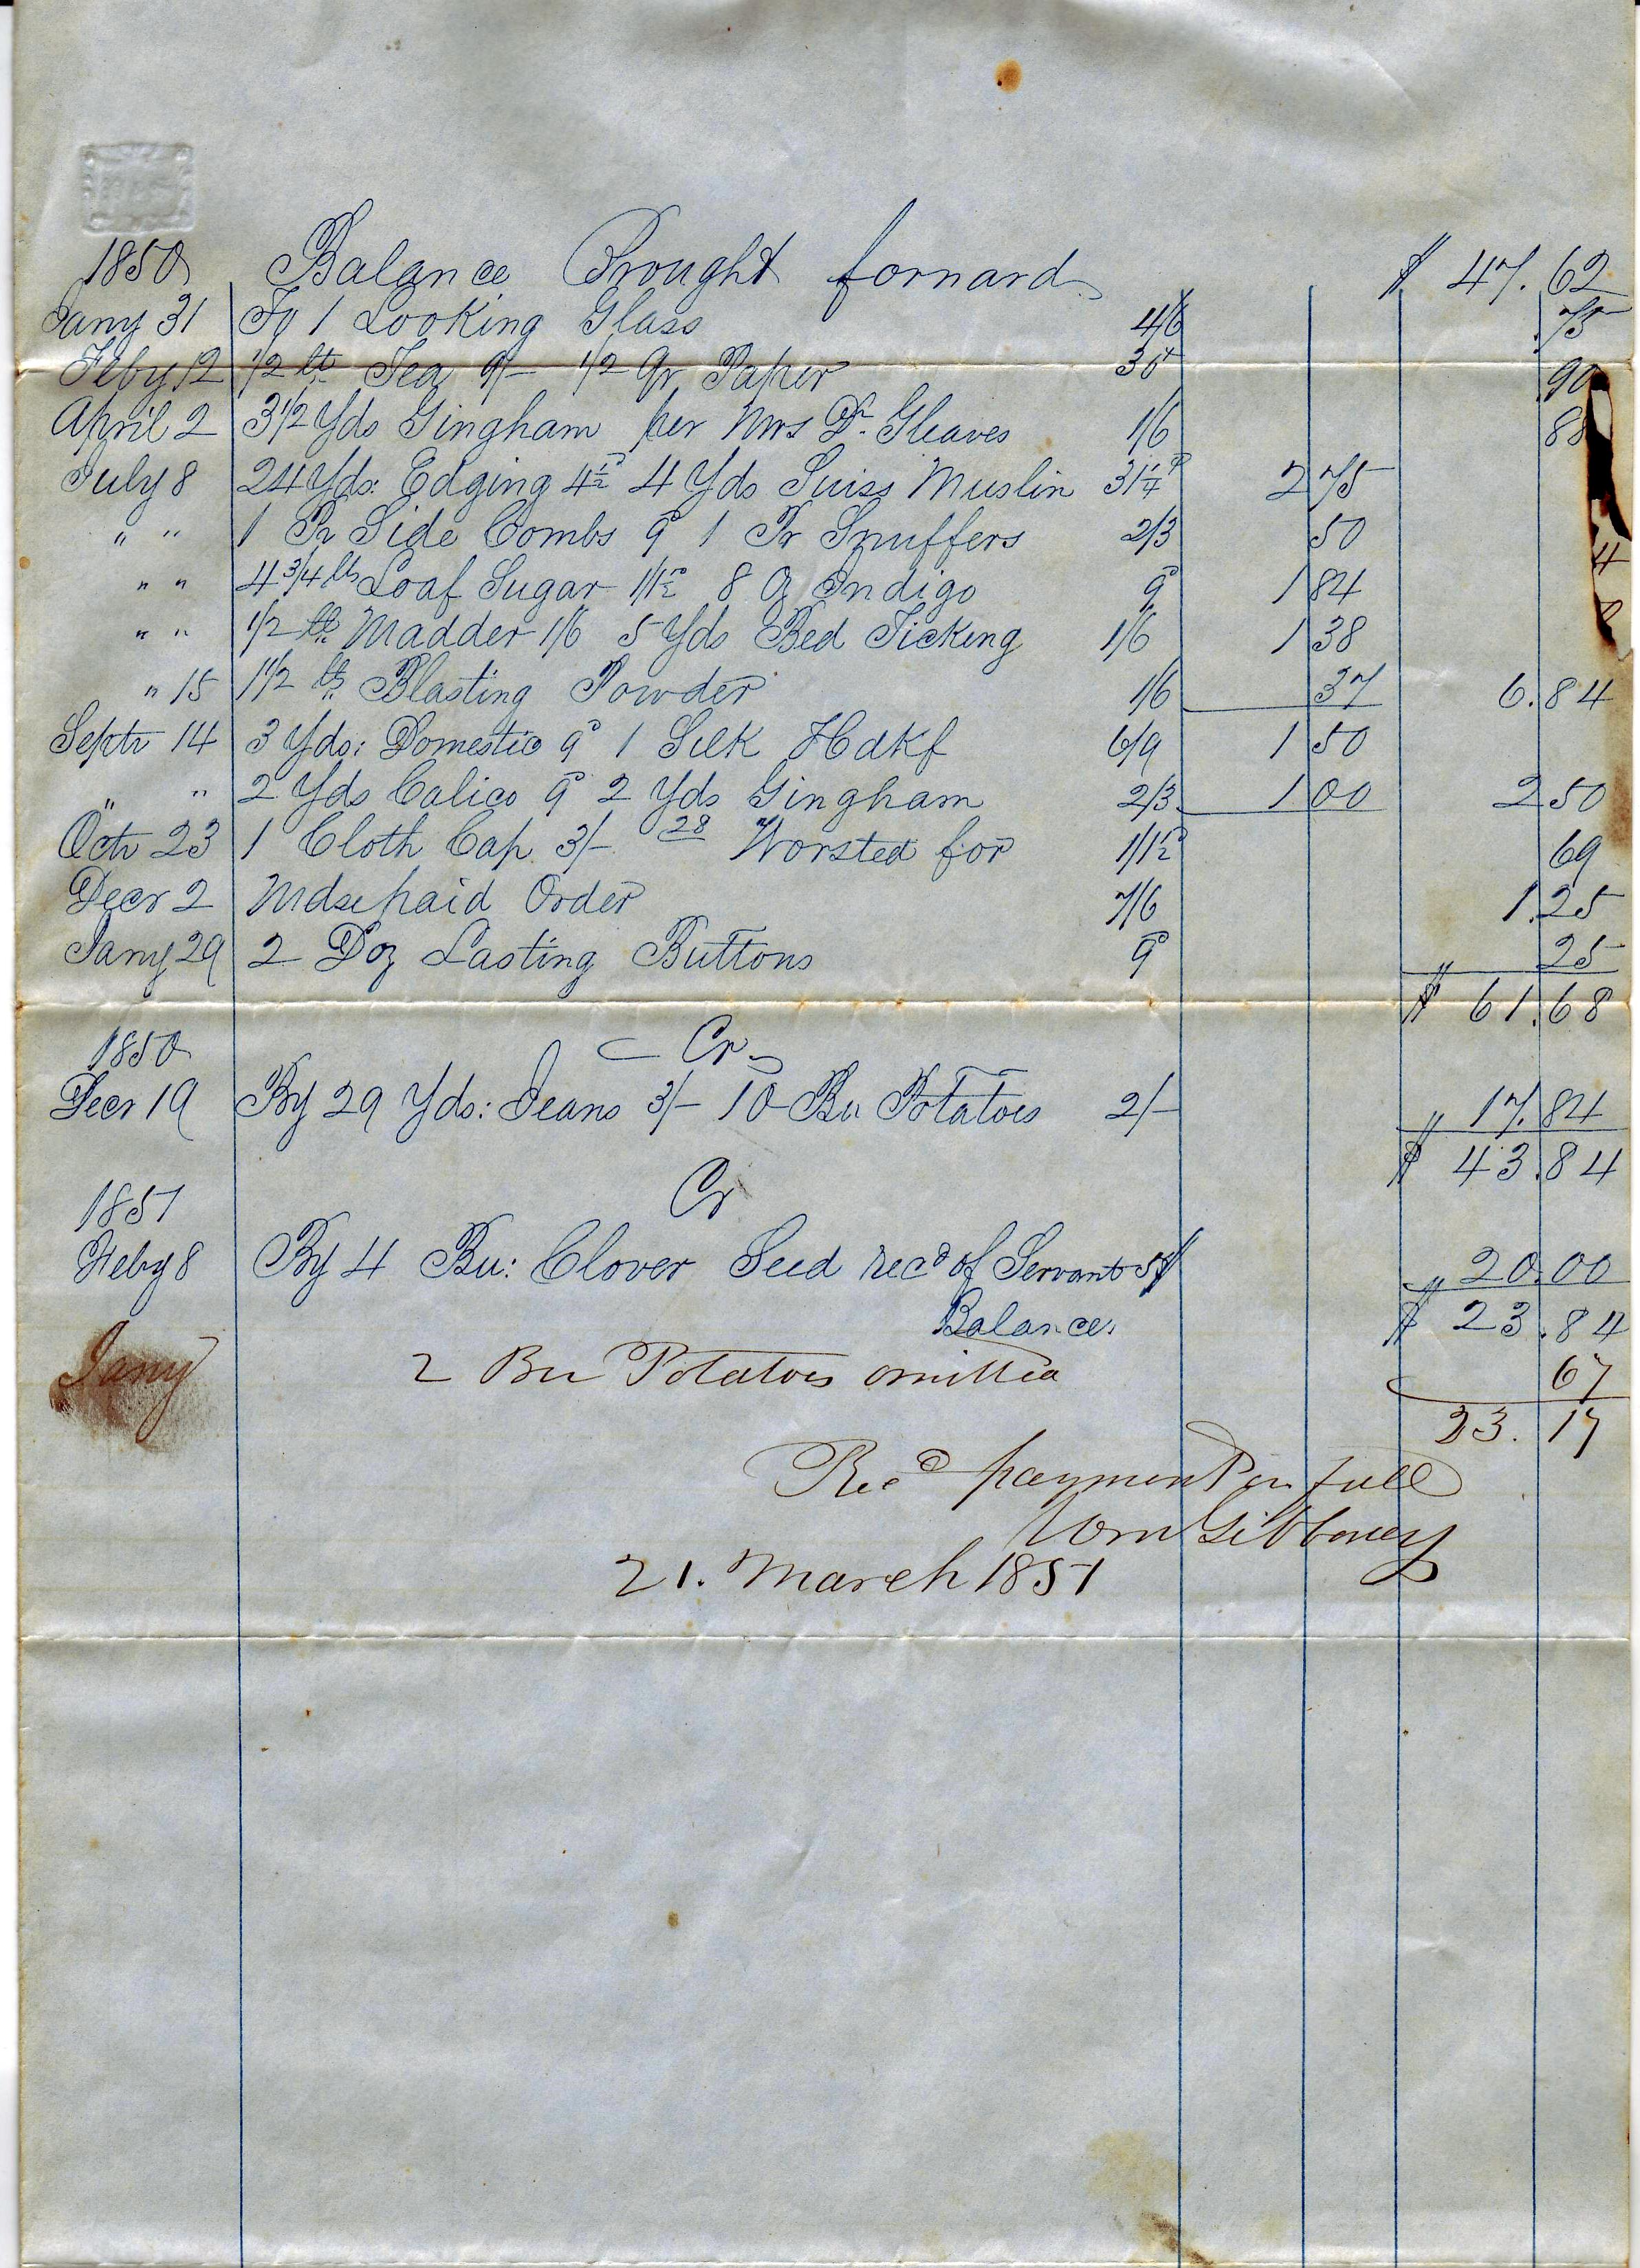 1850 Balance Brought forward $ 47.62
Jany 31 To 1 Looking Glass 4/6 .75
Feby 12 1/2 lb Tea 9/- 1/2 Qr Paper 30 90
April 2 3 1/2 Yds Gingham per Mrs Dr. Gleaves 1/6 88
July 8 24 Yds: Edging 4 1/2d 4 Yds Swiss Muslin 31 1/4 2 75
" " 1 Pr Side Combs 9d 1 Pr Snuffers 2/3 50
" " 4 3/4 lbs Loaf Sugar 1/1 1/2 8 Oz Indigo 9d 1 84
" " 1/2 lb Madder 1/6 5 Yds Bed Ticking 1/6 1 38
" 15 1 1/2 lb Blasting Powder 1/6 37 6.84
Septr 14 3 Yds: Domestic 9d 1 Silk Hdkf 6/9 1 50
" " 2 Yds Calico 9d 2 Yds Gingham 2/3 1 00 2 50
Octr 23 1 Cloth Cap 3/- 28 Worsted for 1/1 1/2 69
Decr 2 Mdse paid Order 7/6 1.25
Jany 29 2 Doz Lasting Buttons 9d 25
$ 61.68
1850 Cr
Decr 19 By 29 Yds: Jeans 3/- 10 Bu Potatoes 2/- 17.84
$ 43.84
1851 Cr
Feby 8 By 4 Bu: Clover Seed recd of Servant 5$ 20.00
Balance $ 23.84
Jany 2 Bu Potatoes omitted 67
23.17
Recd payment in full
Wm Gibboney
21. March 1851